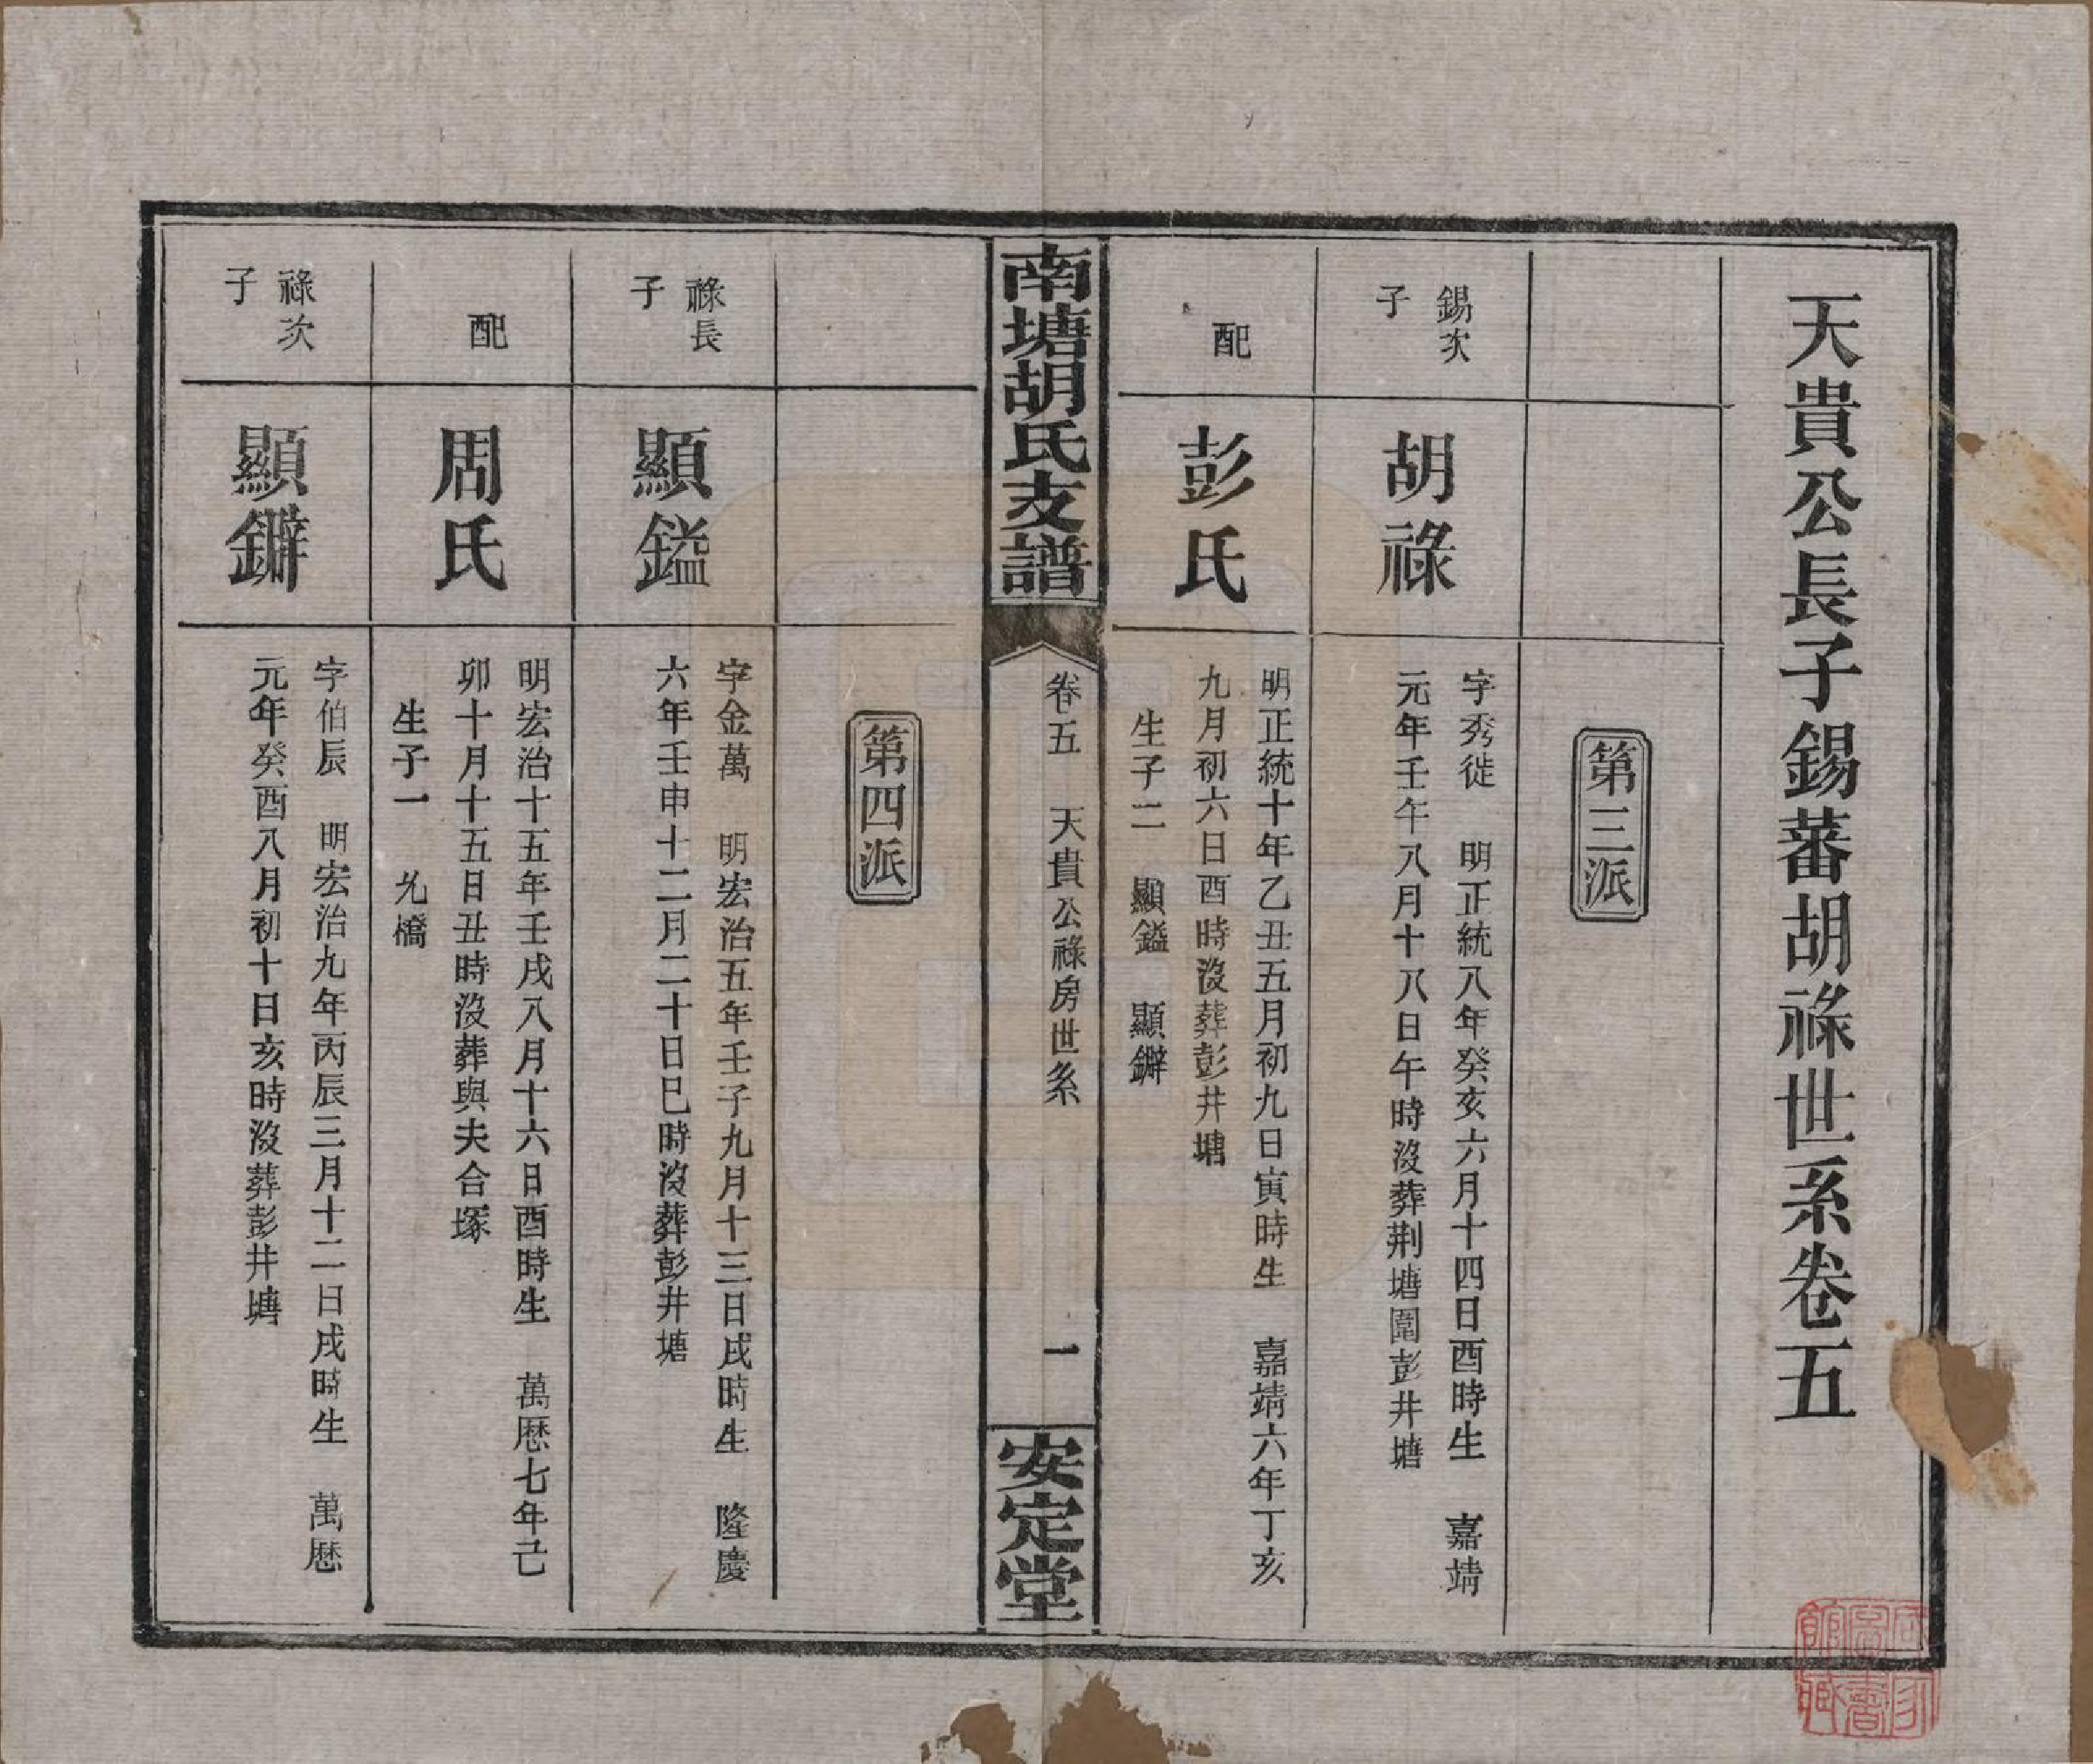 天貴公長子錫蕃胡祿世系卷五
第三派
錫次
子
胡祿
字秀徙　明正統八年癸亥六月十四日酉時生　嘉靖
元年壬午八月十八日午時沒葬荆塘圍彭井塘
配
彭氏
明正統十年乙丑五月初九日寅時生　嘉靖六年丁亥
九月初六日酉時沒葬彭井塘
生子二　顯鎰　顯鐴
南塘胡氏支譜
卷五　天貴公祿房世系
一
安定堂
第四派
祿長
子
顯鎰
字金萬　明宏治五年壬子九月十三日戌時生　隆慶
六年壬申十二月二十日巳時沒葬彭井塘
配
周氏
明宏治十五年壬戌八月十六日酉時生　萬厯七年己
卯十月十五日丑時沒葬與夫合塚
生子一　允橋
祿次
子
顯鐴
字伯辰　明宏治九年丙辰三月十二日戌時生　萬厯
元年癸酉八月初十日亥時沒葬彭井塘